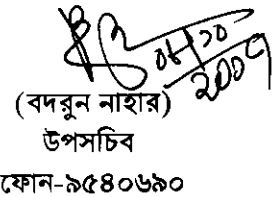 ০৮/১০
2009
(বদরুন নাহার)
উপসচিব
ফোন-৯৫৪০৬৯০